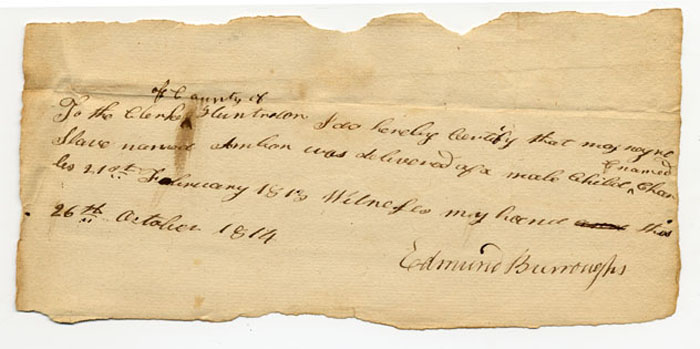 of County of
To the Clerk ^ Hunterdon I do hereby Certify that my negro
Slave named was delivered of a male Child ^ named Char
les 21st February 1813 Witness my hand this
26th October 1814
Edmund Burroughs